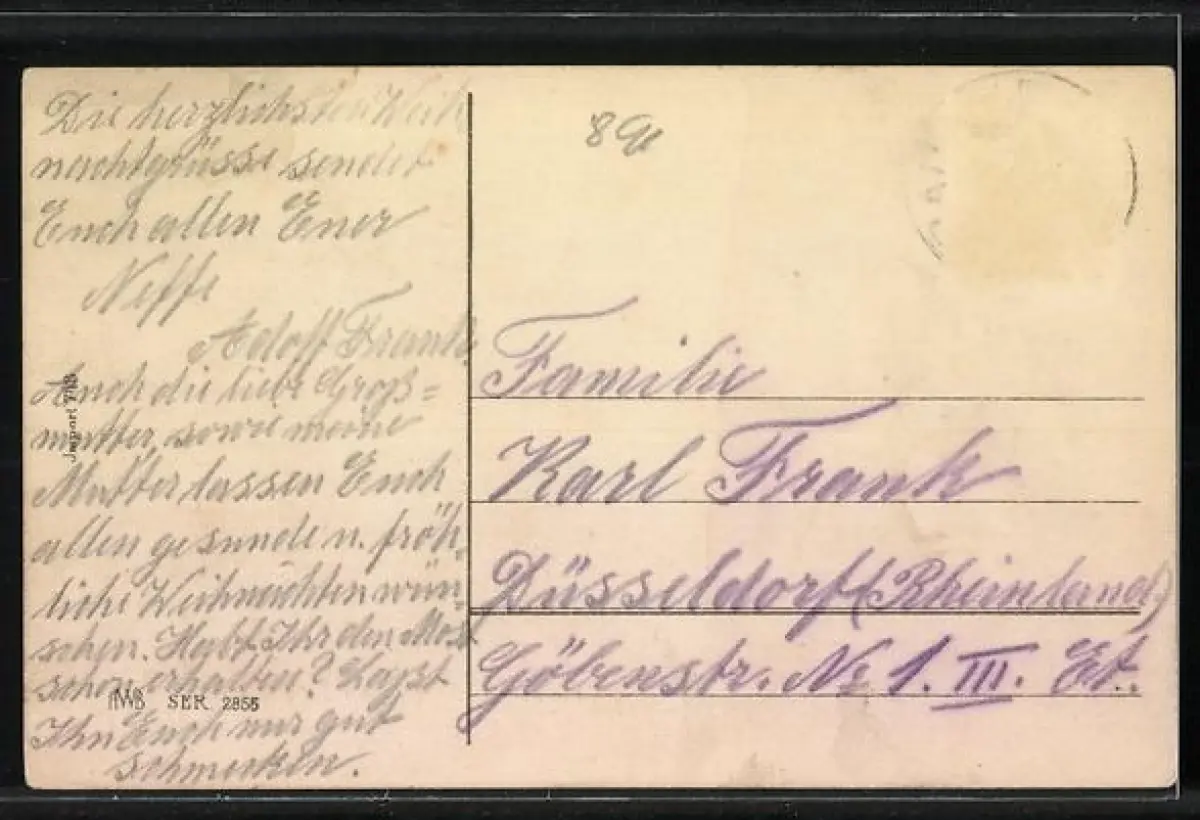 Die herzlichsten Weih
nachtgrüsse sendet
Euch allen Euer
Neffe
Adolf Frank.
Auch die liebe Groß=
mutter, sowie meine
Mutter lassen Euch
allen gesunde u. fröh-
liche Weihnachten wün-
schen. Habt Ihr den Most
schon erhalten? Lasst
Ihn Euch nur gut
schmecken.
Import
AWB SER 2856
Familie
Karl Frank
Düsseldorf (Rheinland.)
Göbenstr. Nr 1. III. Et.